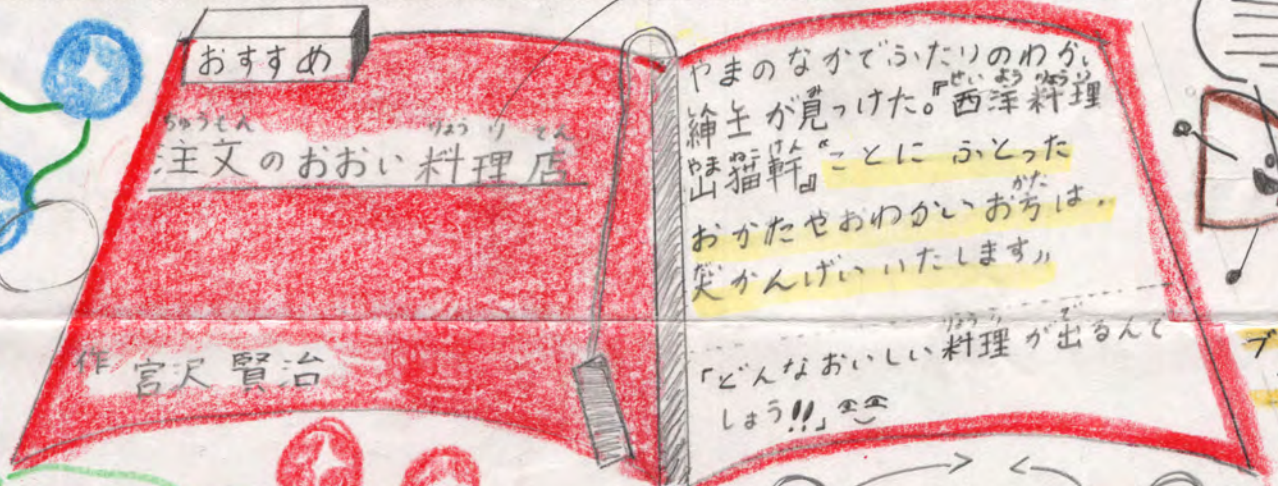 おすすめ
注文のおおい料理店
作 宮沢賢治
やまのなかでふたりのわかい
紳士が見つけた。『西洋料理
山猫軒』“ことにふとった
おかたやおわかいお方は、
大かんげいいたします”
「どんなおいしい料理が出るんで
しょう!!」
ブ